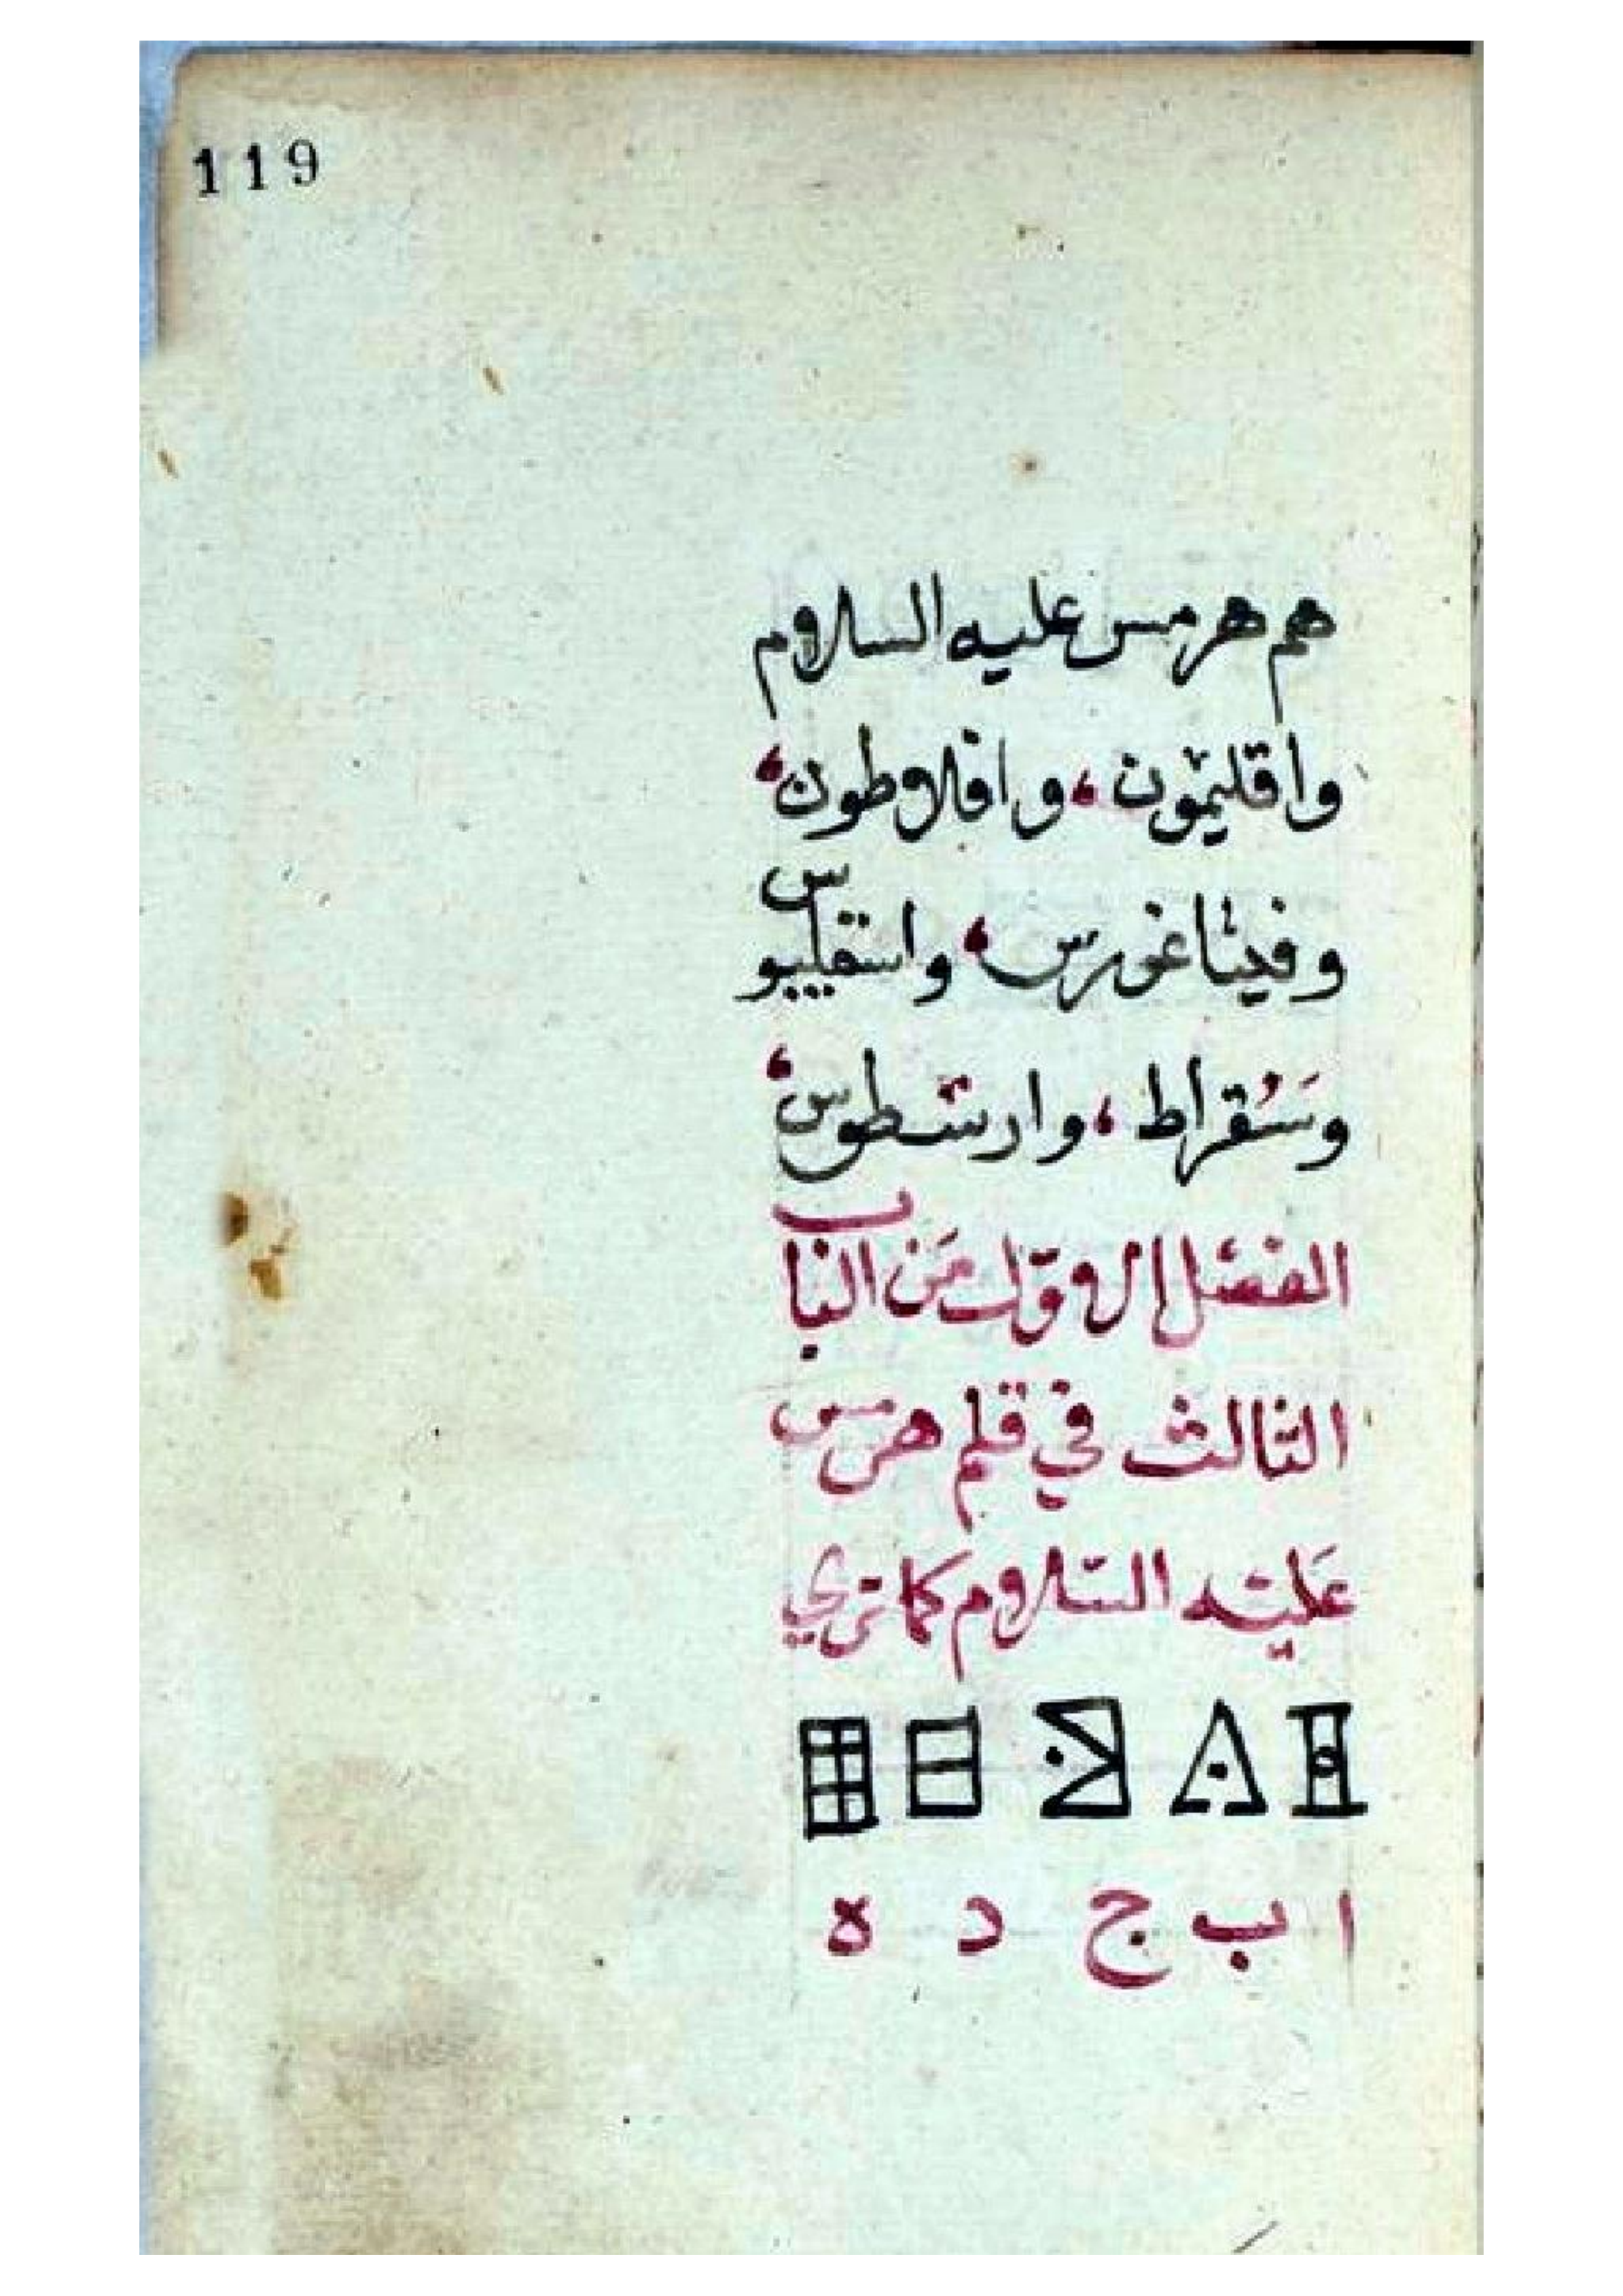 119
هم هرمس عليه السلام
واقليمون، وافلاطون،
وفيثاغورس، واسقليبوس
وَسُقراط، وارسطوس،
الفصل الاول من الباب
الثالث في قلم هرمس
عَليه السلام كما تري
ا ب ج د ه